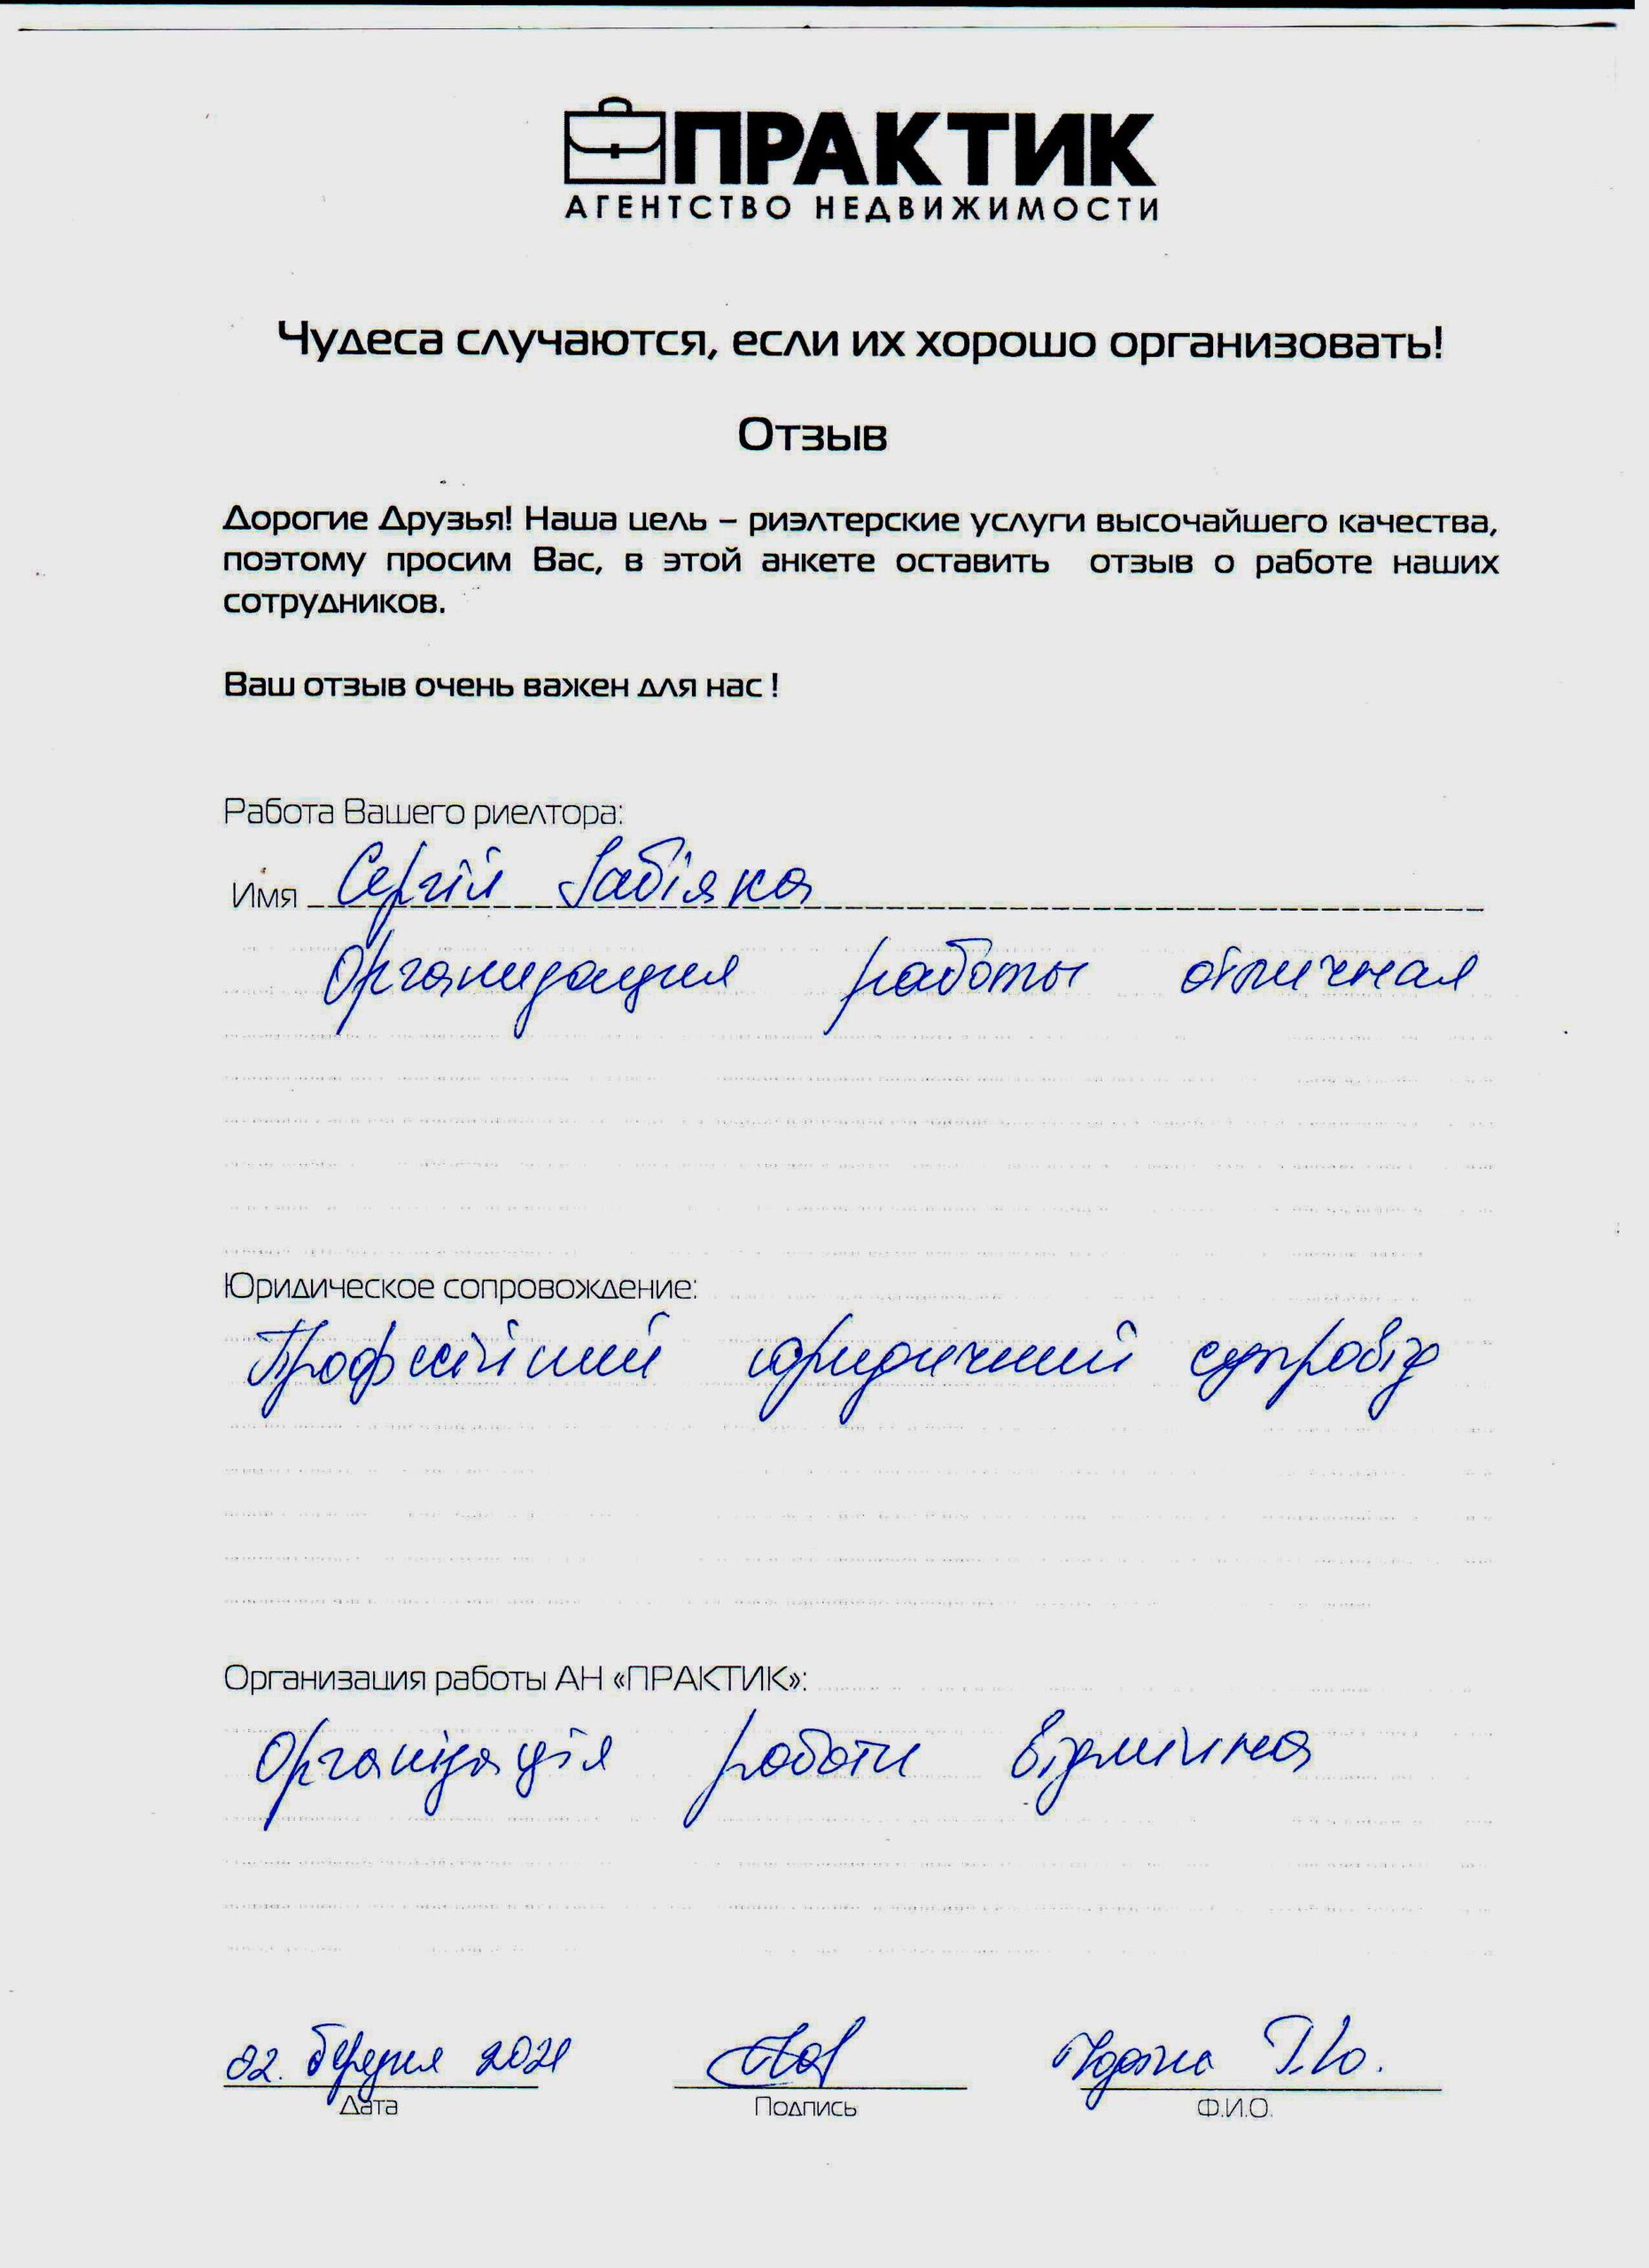 ПРАКТИК
АГЕНТСТВО НЕДВИЖИМОСТИ
Чудеса случаются, если их хорошо организовать!
Отзыв
Дорогие Друзья! Наша цель – риэлтерские услуги высочайшего качества,
поэтому просим Вас, в этой анкете оставить отзыв о работе наших
сотрудников.
Ваш отзыв очень важен для нас !
Работа Вашего риелтора:
Имя Сергій Забіяка
Организация работы отличная
Юридическое сопровождение:
Професійний юридичний супровід
Организация работы АН «ПРАКТИК»:
Організація роботи відмінна
02. березня 2021 Т.Ю.
Дата Подпись Ф.И.О.